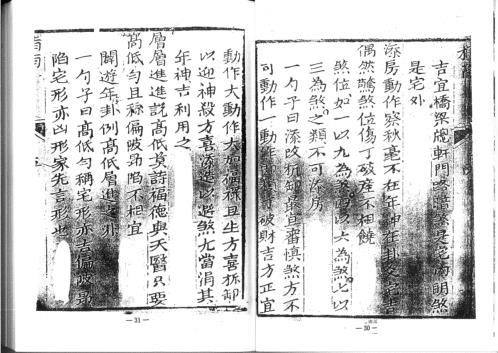 吉宜橋梁
是宅外
添房動作察秋毫不在年神在卦爻
偶然驚煞位傷丁破產不相饒
煞位如一以九為煞四以六為煞
三為煞之類不可添房
一勺子曰添改拆卸最宜審慎煞方不
可動作一動作破財吉方正宜
— 30 —
動作大動作大如個樣且坐方喜拆卸
以迎神殺方喜添造以避煞尤當涓其
年神吉利用之
層層進進說高低莫詩福德與天醫只要
高低勻且稱偏陂昂陷不相宜
闢遊年卦例高低層進之外
一勺子曰高低勻稱宅形亦吉偏陂昂
陷宅形亦凶形家先言形也
— 31 —